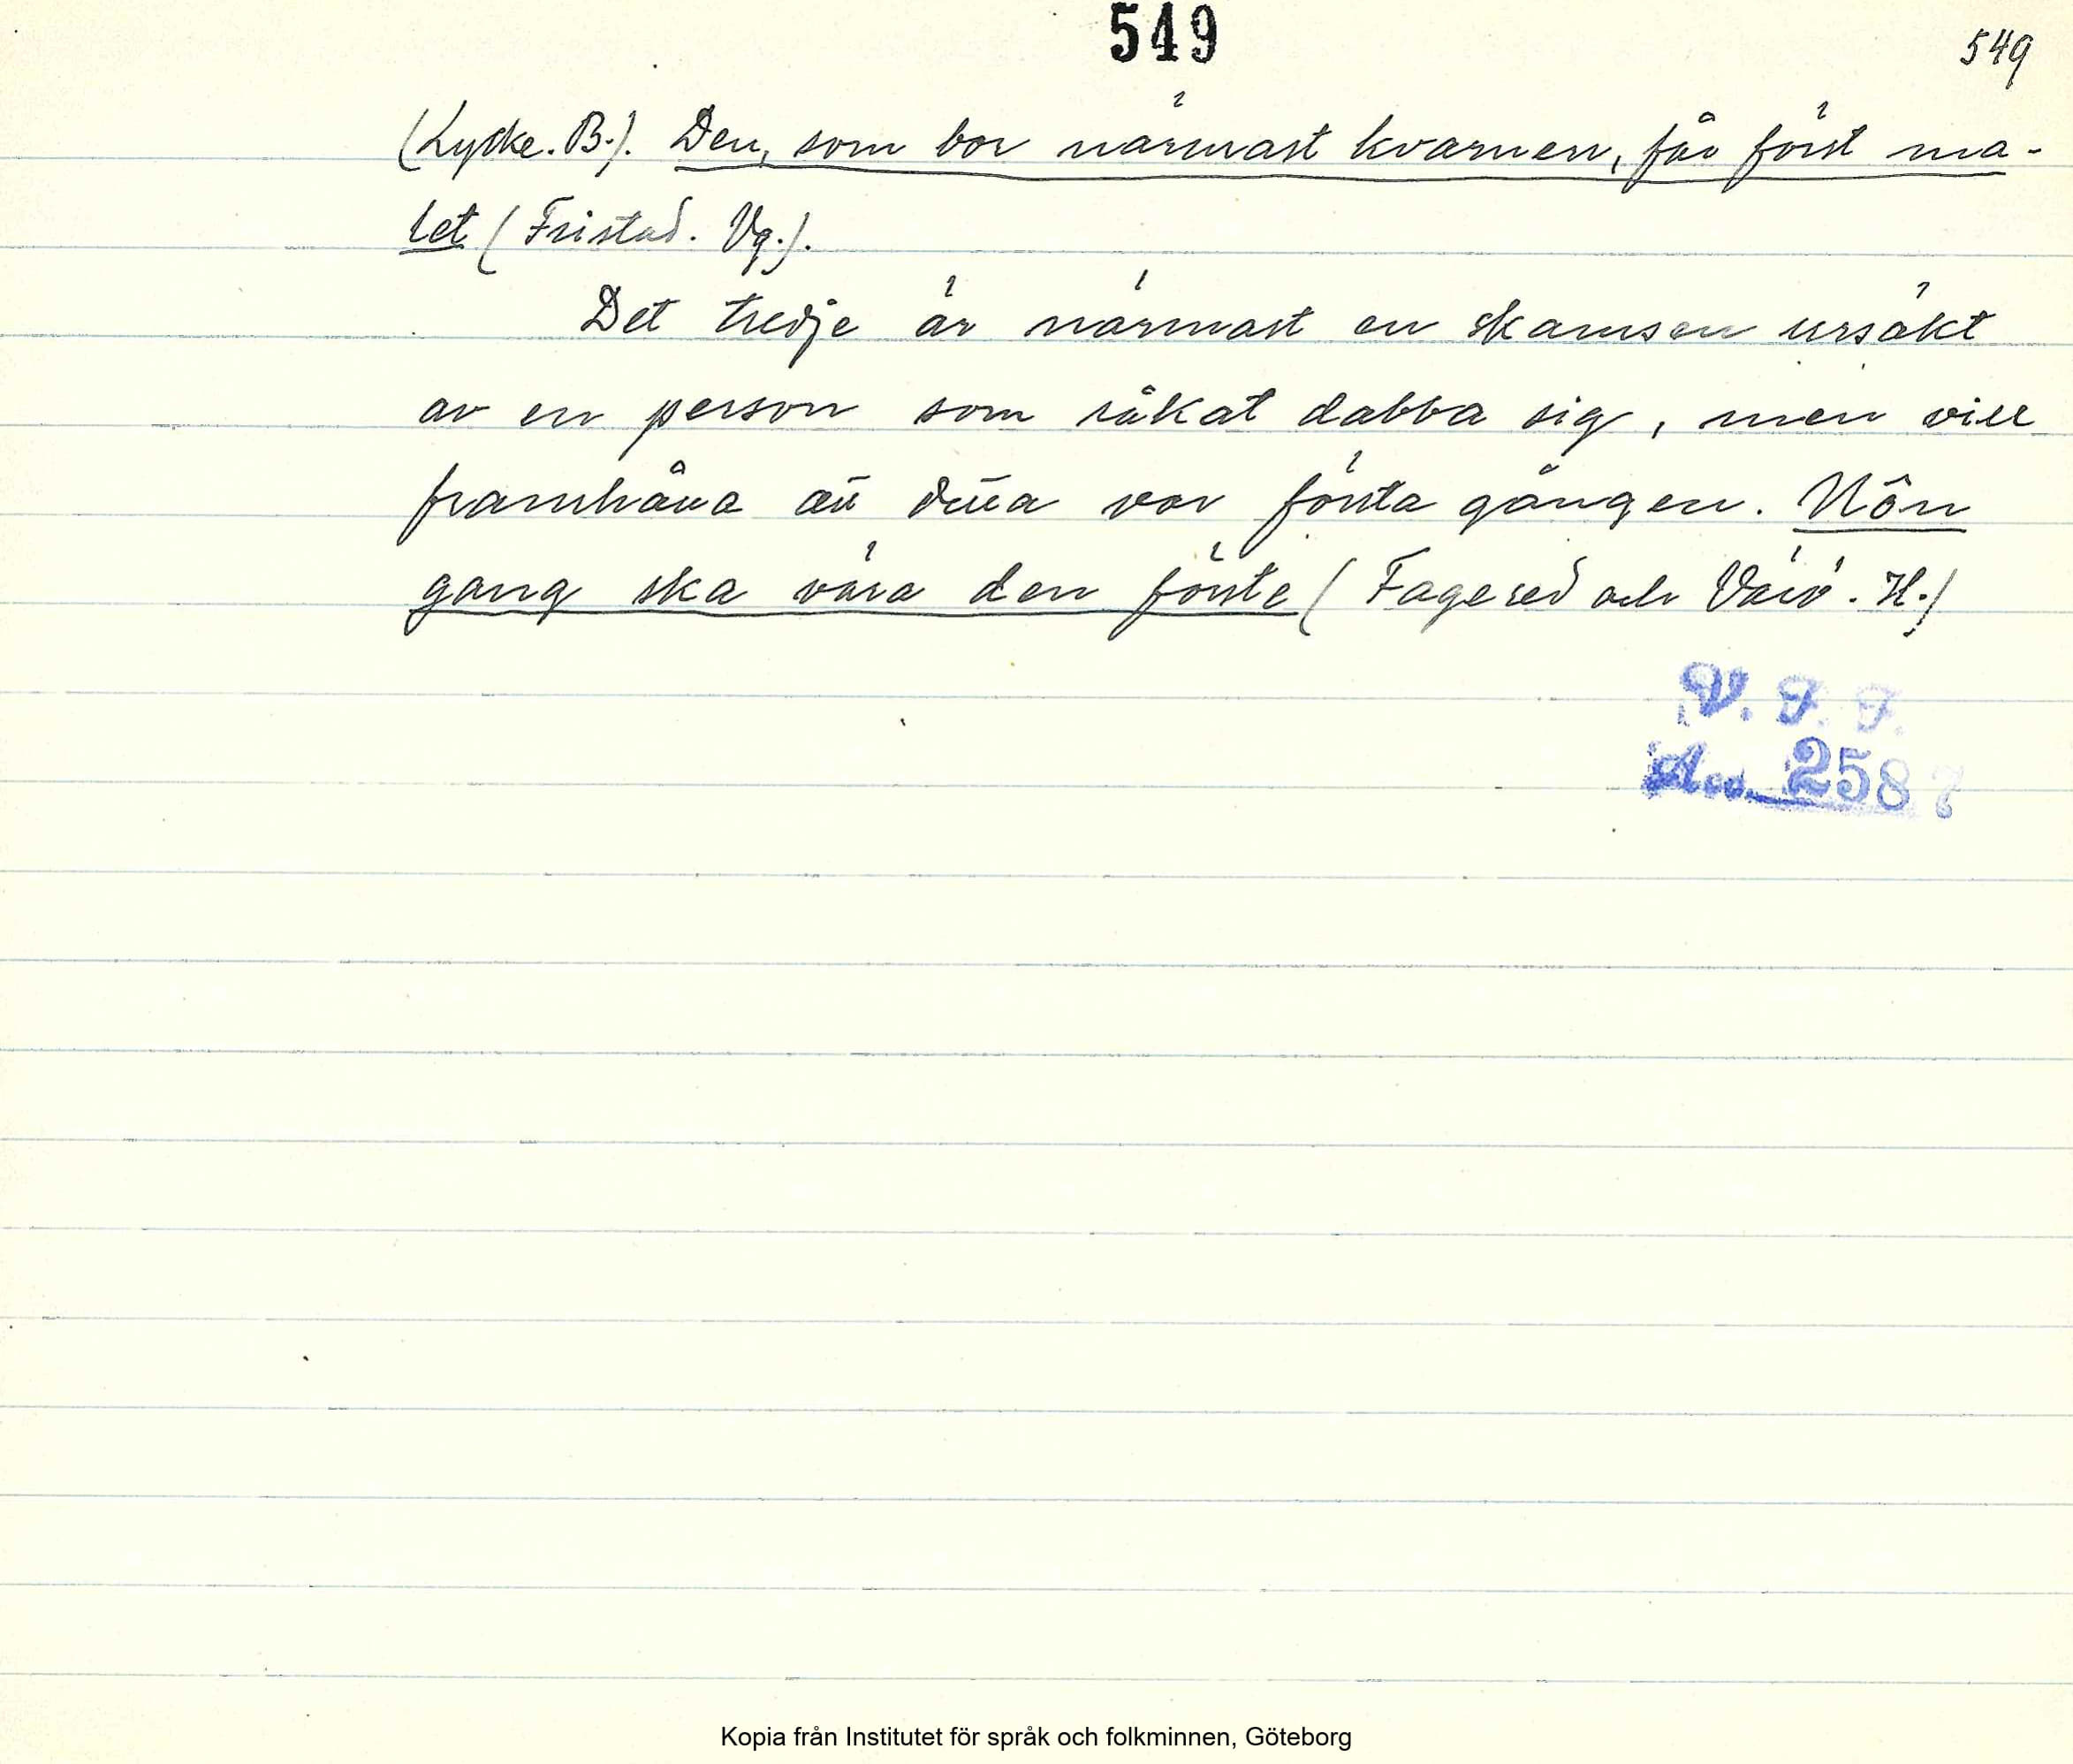 549
549
(Lycke. B.). Den, som bor närmast kvarnen, får först ma-
let (Fristad. Vg.).
Det tredje är närmast en skamsen ursäkt
av en person som råkat dabba sig, men vill
framhäva att detta var första gången. Nôn
gang ska våra den förste (Fagered och Värö. H.)
V. F. F.
Acc. 2587
Kopia från Institutet för språk och folkminnen, Göteborg